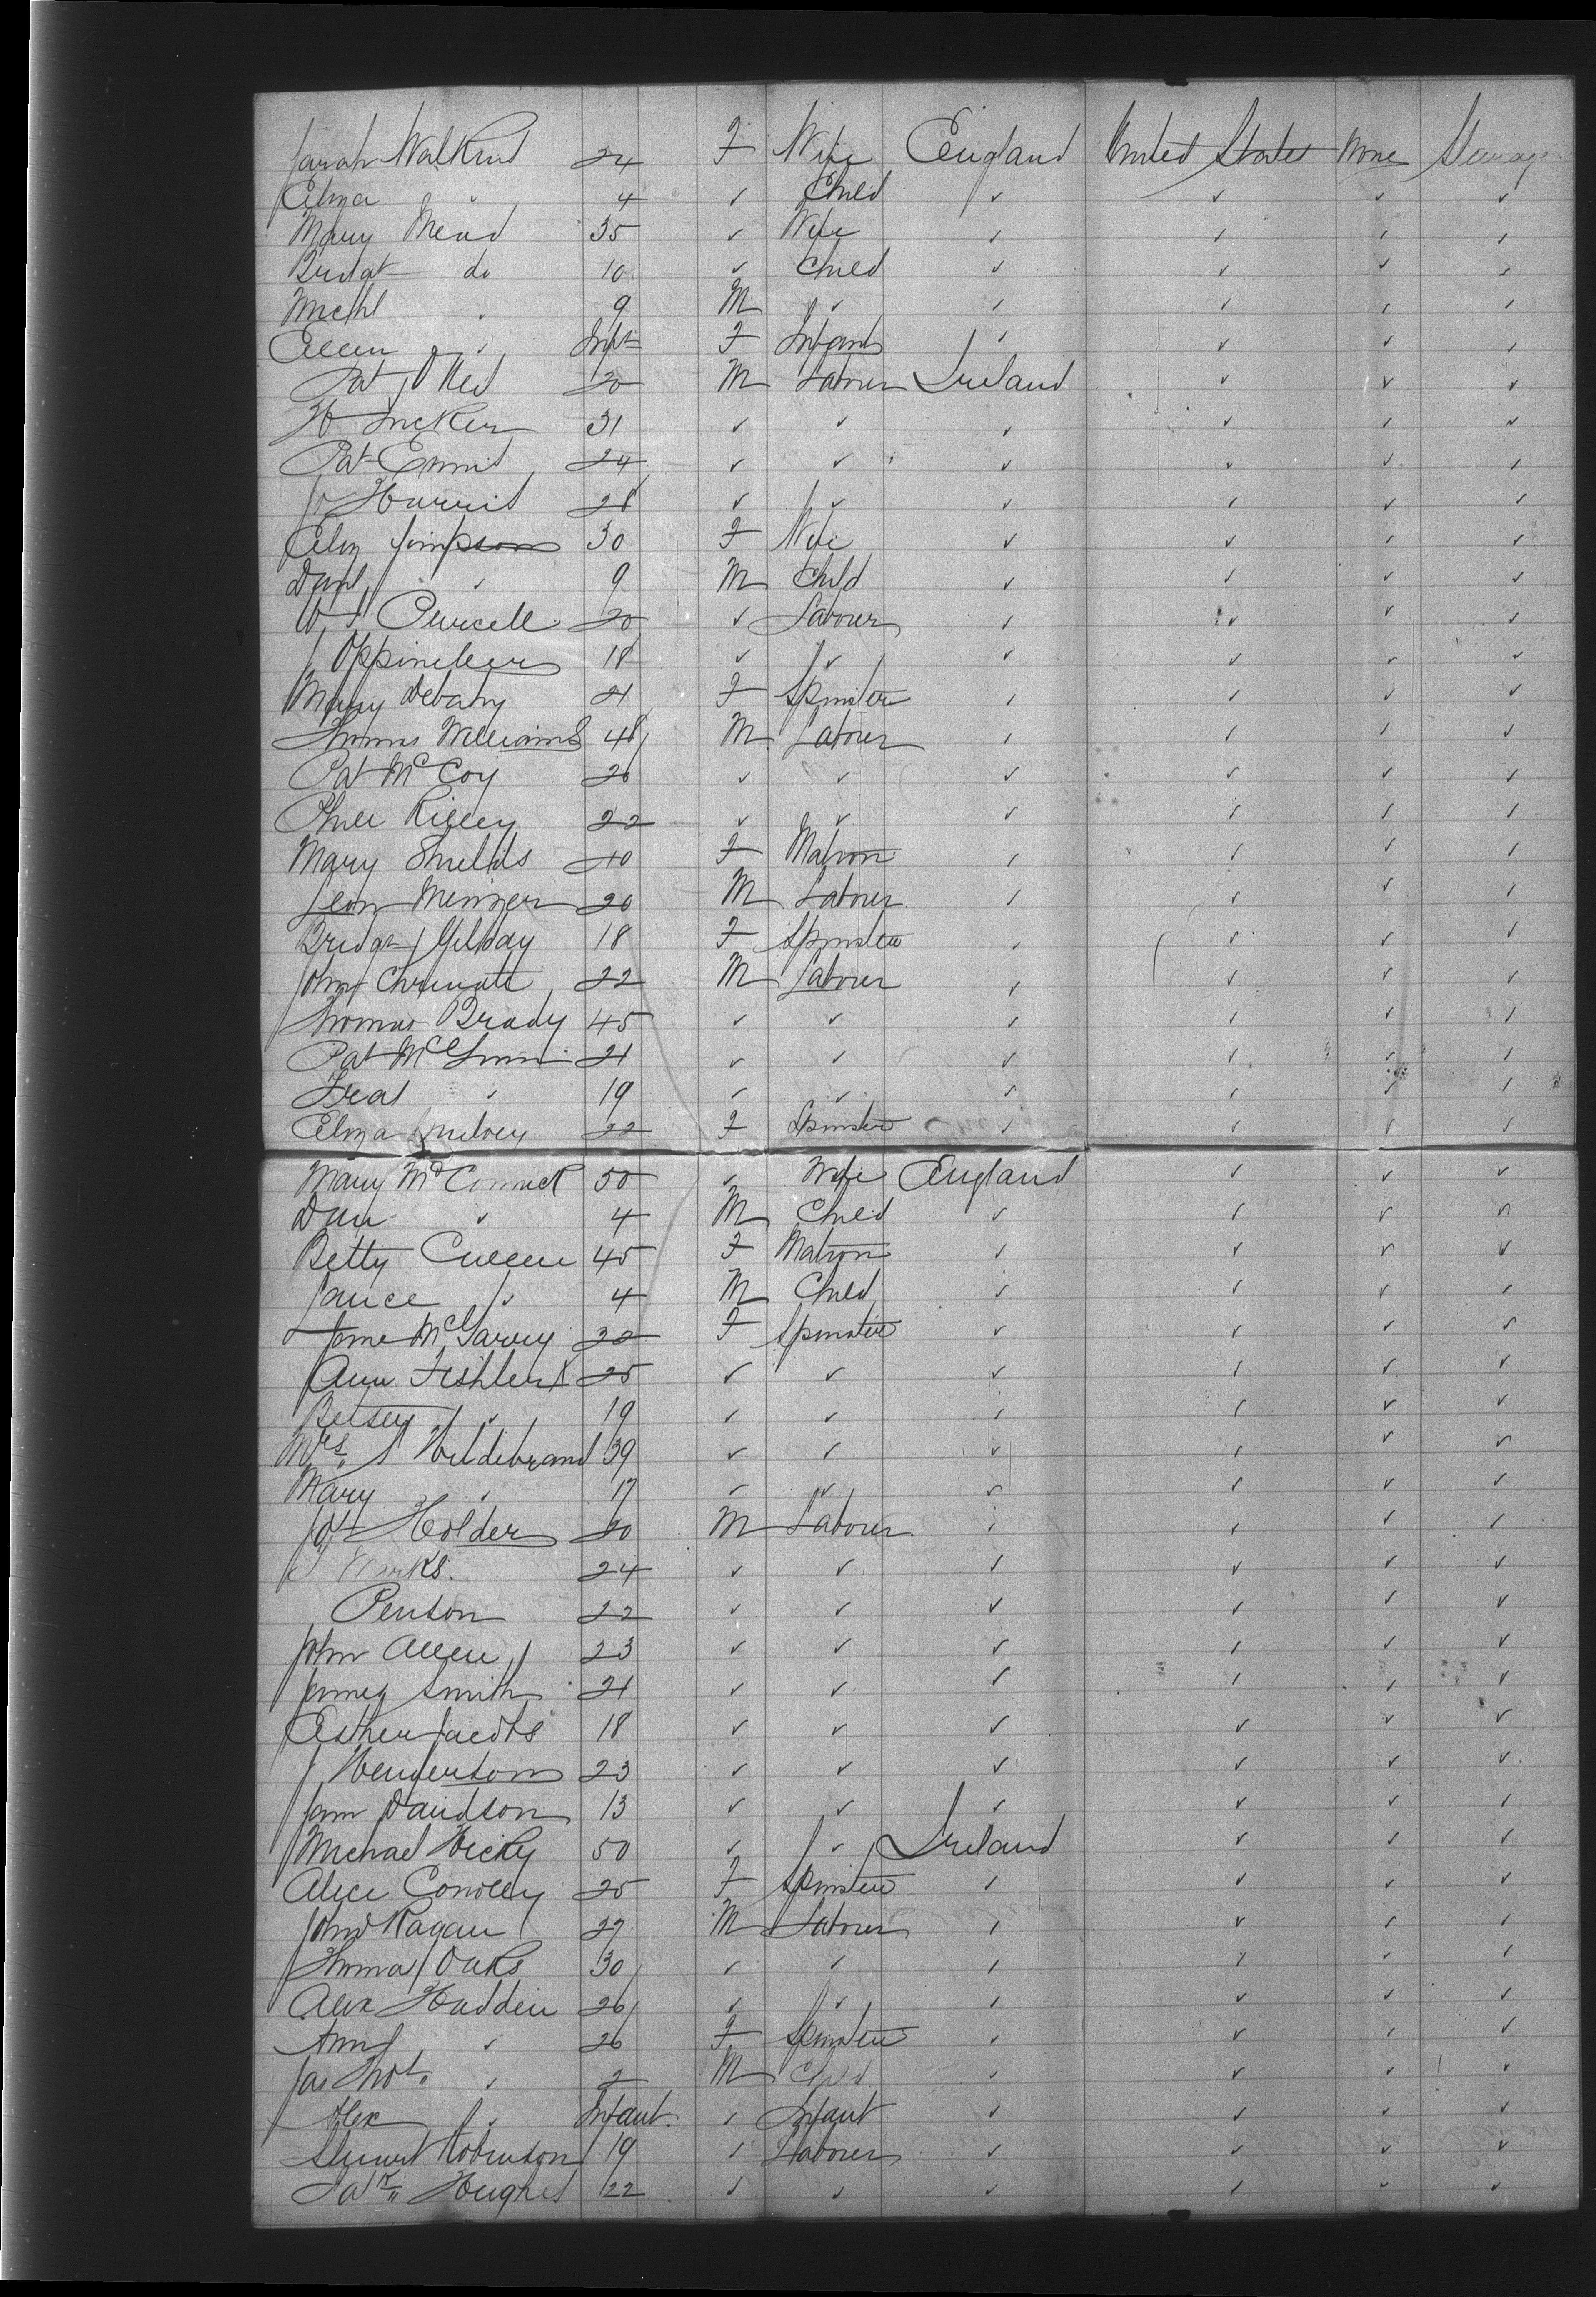 Sarah Walkend 24 F Wife England United States None Steerage
Eliza " 4 ✓ Child ✓ ✓ ✓ ✓
Mary Mead 35 ✓ Wife ✓ ✓ ✓ ✓
Bridgt do 10 ✓ Child ✓ ✓ ✓ ✓
Michl " 9 M ✓ ✓ ✓ ✓ ✓
Ellen " Inft F Infant ✓ ✓ ✓ ✓
Pat 20 M Labourer Ireland ✓ ✓ ✓
31 ✓ ✓ ✓ ✓ ✓ ✓
Pat 24 ✓ ✓ ✓ ✓ ✓ ✓
28 ✓ ✓ ✓ ✓ ✓ ✓
Eliz Simpson 30 F Wife ✓ ✓ ✓ ✓
Danl ✓ 9 M Child ✓ ✓ ✓ ✓
Purcell 20 ✓ Labourer ✓ ✓ ✓ ✓
18 ✓ ✓ ✓ ✓ ✓ ✓
Mary 21 F Spinster ✓ ✓ ✓ ✓
Thomas Williams 48 M Labourer ✓ ✓ ✓ ✓
Pat McCoy 26 ✓ ✓ ✓ ✓ ✓ ✓
Phill Rilley 22 ✓ ✓ ✓ ✓ ✓ ✓
Mary Shields 40 F Matron ✓ ✓ ✓ ✓
20 M Labourer ✓ ✓ ✓ ✓
Bridgt Gilday 18 F Spinster ✓ ✓ ✓ ✓
John 22 M Labourer ✓ ✓ ✓ ✓
Thomas Brady 45 ✓ ✓ ✓ ✓ ✓ ✓
Pat 21 ✓ ✓ ✓ ✓ ✓ ✓
✓ 19 ✓ ✓ ✓ ✓ ✓ ✓
Eliza 22 F Spinster ✓ ✓ ✓ ✓
Mary McCormick 50 ✓ Wife England ✓ ✓ ✓
Dan ✓ 4 M Child ✓ ✓ ✓ ✓
Betty Cullen 45 F Matron ✓ ✓ ✓ ✓
✓ 4 M Child ✓ ✓ ✓ ✓
Jane McGarvey 22 F Spinster ✓ ✓ ✓ ✓
Ann Fishler 25 ✓ ✓ ✓ ✓ ✓ ✓
Betsey ✓ 19 ✓ ✓ ✓ ✓ ✓ ✓
Mrs S Hildebrand 39 ✓ ✓ ✓ ✓ ✓ ✓
Mary ✓ 17 ✓ ✓ ✓ ✓ ✓ ✓
Holder 20 M Labourer ✓ ✓ ✓ ✓
24 ✓ ✓ ✓ ✓ ✓ ✓
Penton 22 ✓ ✓ ✓ ✓ ✓ ✓
John Allen 23 ✓ ✓ ✓ ✓ ✓ ✓
James Smith 21 ✓ ✓ ✓ ✓ ✓ ✓
Esther Jacobs 18 ✓ ✓ ✓ ✓ ✓ ✓
J Henderson 23 ✓ ✓ ✓ ✓ ✓ ✓
Davidson 13 ✓ ✓ ✓ ✓ ✓ ✓
Michael Hicky 50 ✓ ✓ Ireland ✓ ✓ ✓
Alice Conolley 25 F Spinster ✓ ✓ ✓ ✓
John Ragan 27 M Labourer ✓ ✓ ✓ ✓
Thomas Oaks 30 ✓ ✓ ✓ ✓ ✓ ✓
Alex Hadden 26 ✓ ✓ ✓ ✓ ✓ ✓
Ann ✓ 26 F Spinster ✓ ✓ ✓ ✓
✓ 2 M Child ✓ ✓ ✓ ✓
Alex ✓ Infant ✓ Infant ✓ ✓ ✓ ✓
Stewart Robinson 19 ✓ Labourer ✓ ✓ ✓ ✓
Patk Hughes 22 ✓ ✓ ✓ ✓ ✓ ✓